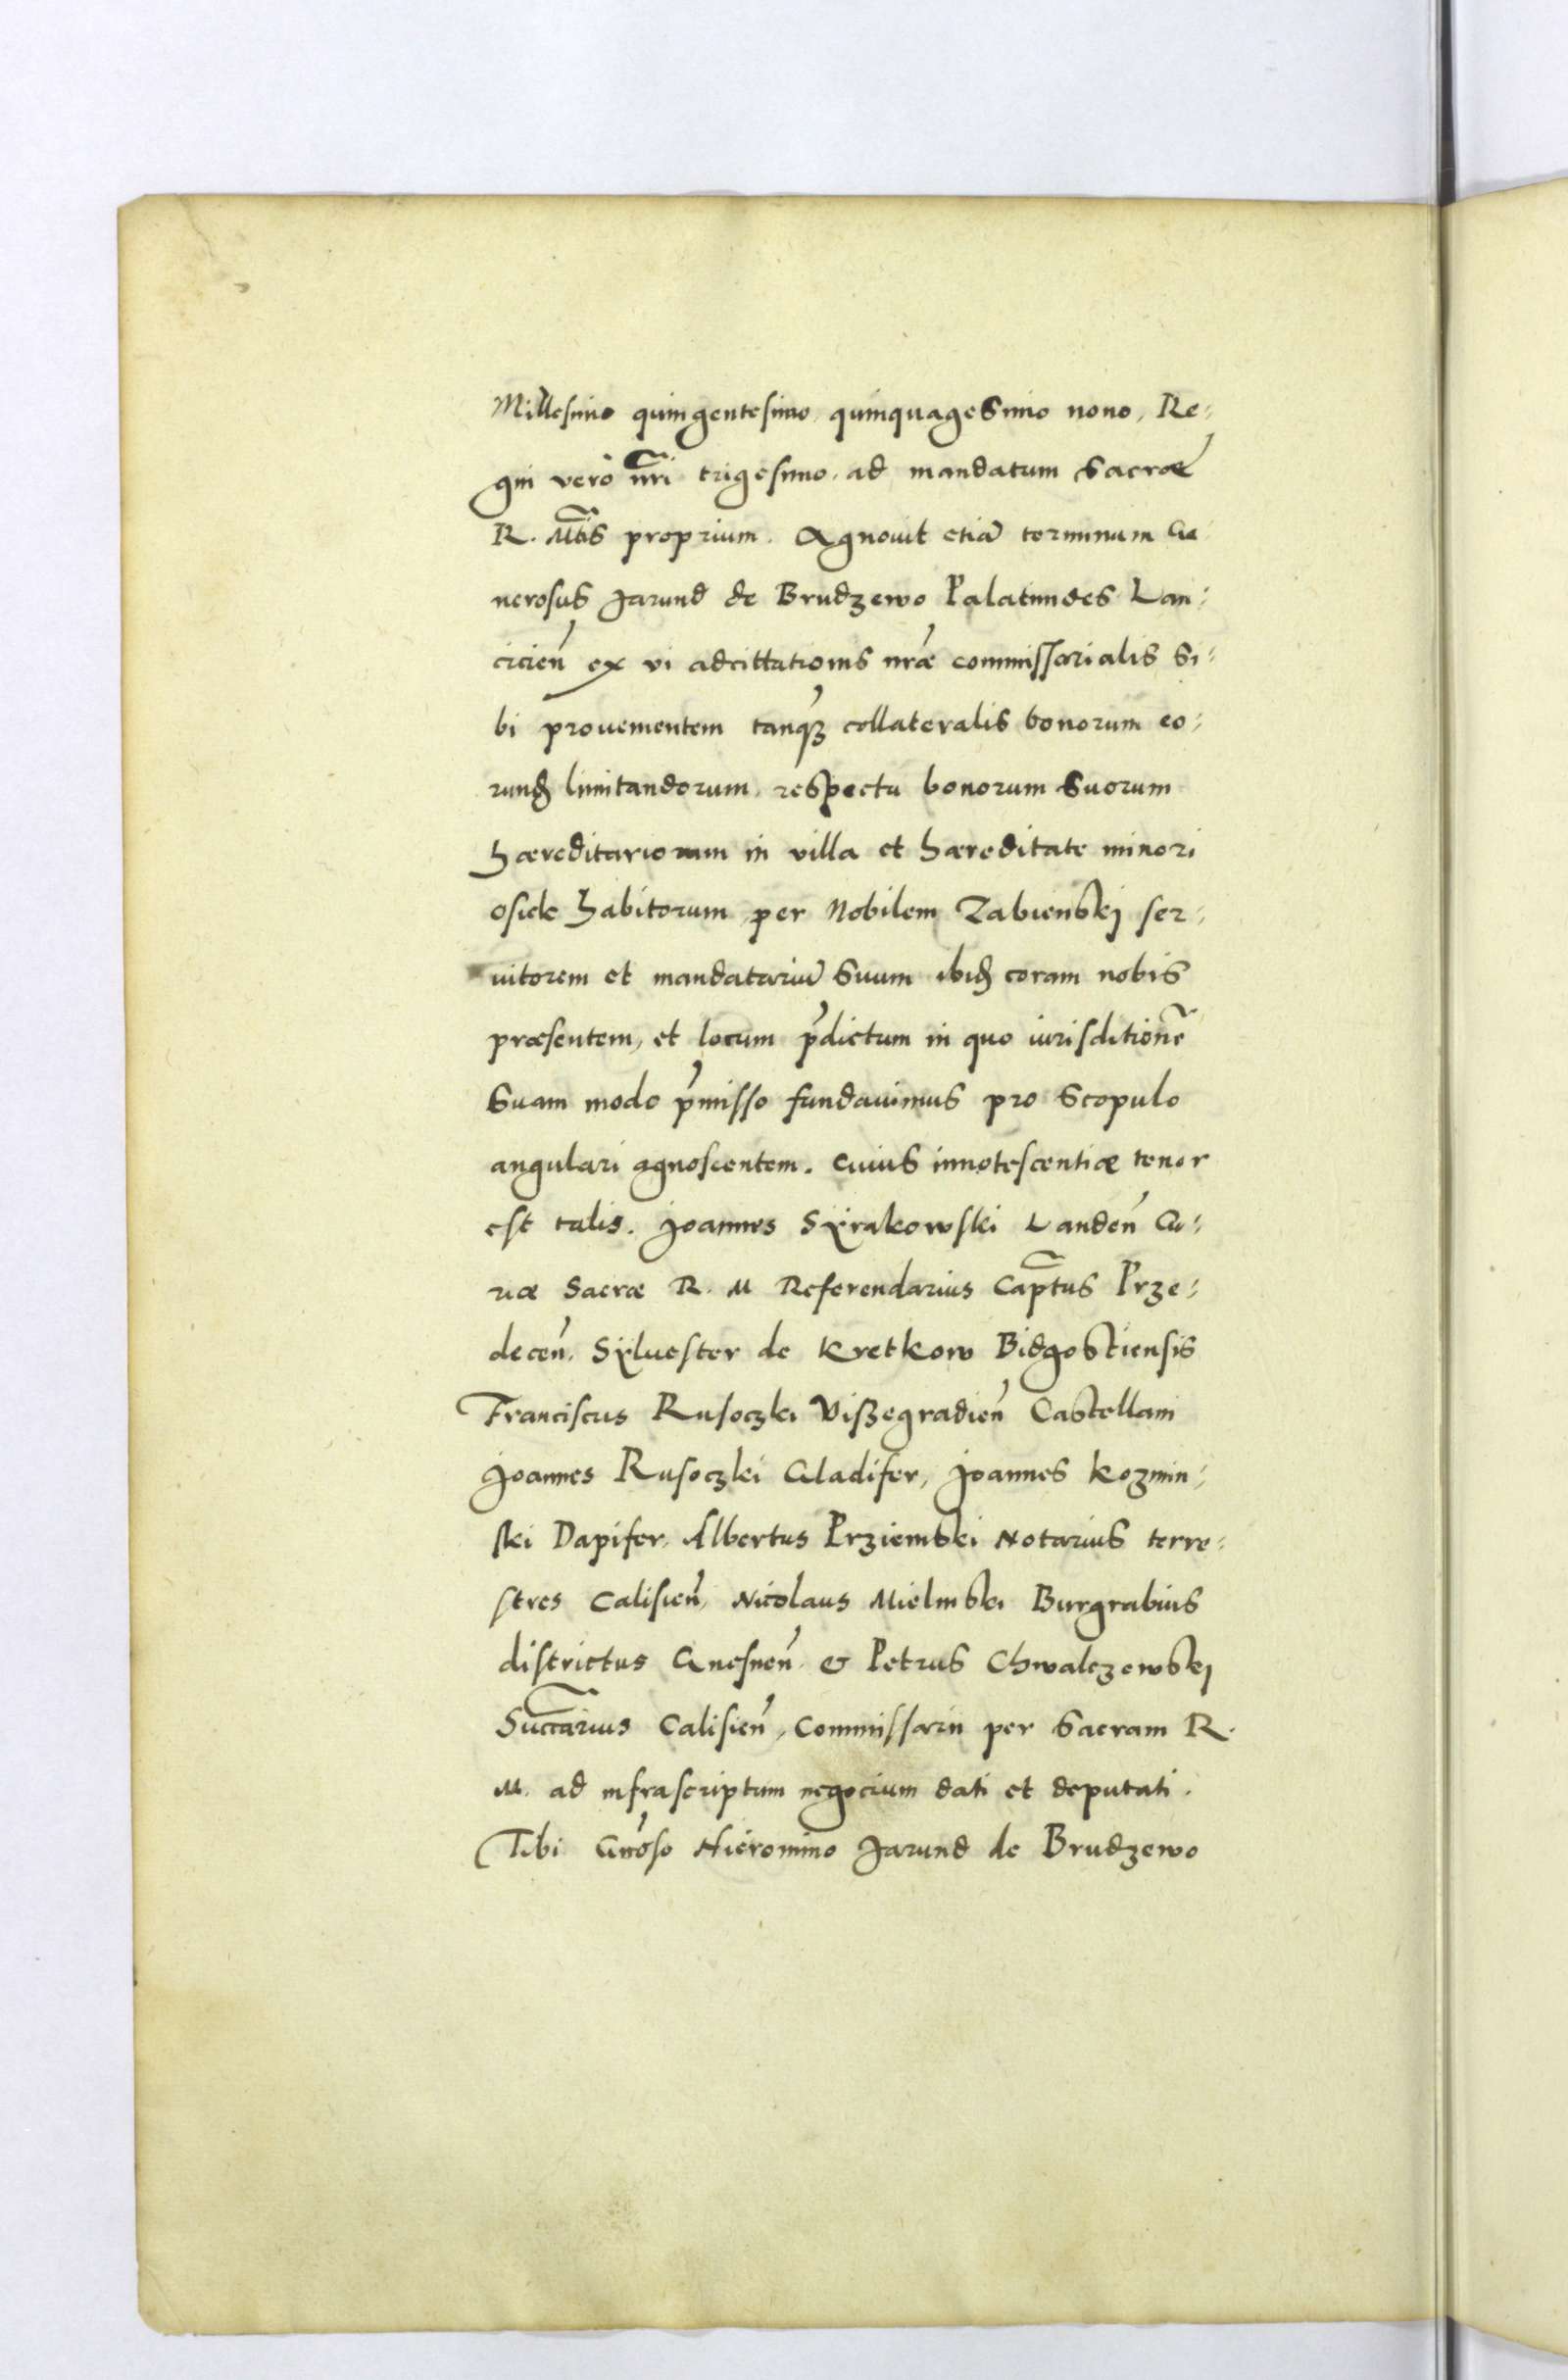 Millesimo quingentesimo quinquagesimo nono, Re:
gni vero nr̃i trigesimo. ad mandatum Sacræ
R. Mt̃is proprium. Agnovit etiã terminum Ge
nerosus Jarund de Brudzewo Palatinides Lan:
cicieñ ex vi adcittationis nr̃æ commissorialis si:
bi provenientem tanq̃ʒ collateralis bonorum eo:
rund limitandorum, respectu bonorum suorum
hæreditariorum in villa et hæreditate minori
osiek habitorum per Nobilem Zabienskj ser:
uitorem et mandatariũ suum ibid coram nobis
præsentem, et locum p̃dictum in quo iurisditionẽ
suam modo p̃misso fundauimus pro scopulo
angulari agnoscentem. cuius innotescentiæ tenor
est talis. Joannes Sÿrakowski Landeñ Cu:
riæ Sacræ R. M Referendarius Cap̃tus Prze:
deceñ. Sÿluester de Kretkow Bidgostiensis
Franciscus Rusoczki Vißegradieñ Castellani
Joannes Rusoczki Gladifer, Joannes Kozmin:
ski Dapifer, Albertus Prziemski Notarius terre:
stres Calisieñ, Nicolaus Mielinski Burgrabius
districtus Gnesneñ. & Petrus Chwalczewskj
Succ̃arius Calisieñ, Commissarii per Sacram R.
M. ad infrascriptum negocium dati et deputati.
Tibi Gnõso Hieronimo Jarund de Brudzewo